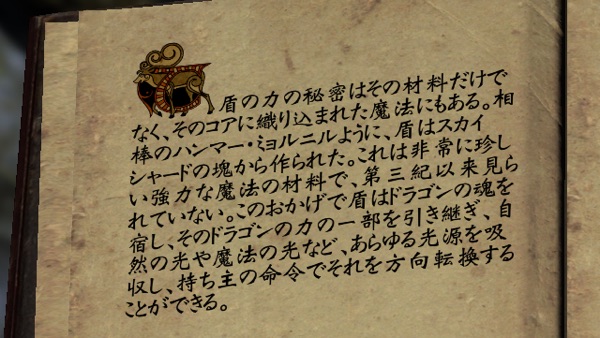 盾の力の秘密はその材料だけで
なく、そのコアに織り込まれた魔法にもある。相
棒のハンマー・ミョルニルように、盾はスカイ
シャードの塊から作られた。これは非常に珍し
い強力な魔法の材料で、第三紀以来見ら
れていない。このおかげで盾はドラゴンの魂を
宿し、そのドラゴンの力の一部を引き継ぎ、自
然の光や魔法の光など、あらゆる光源を吸
収し、持ち主の命令でそれを方向転換する
ことができる。